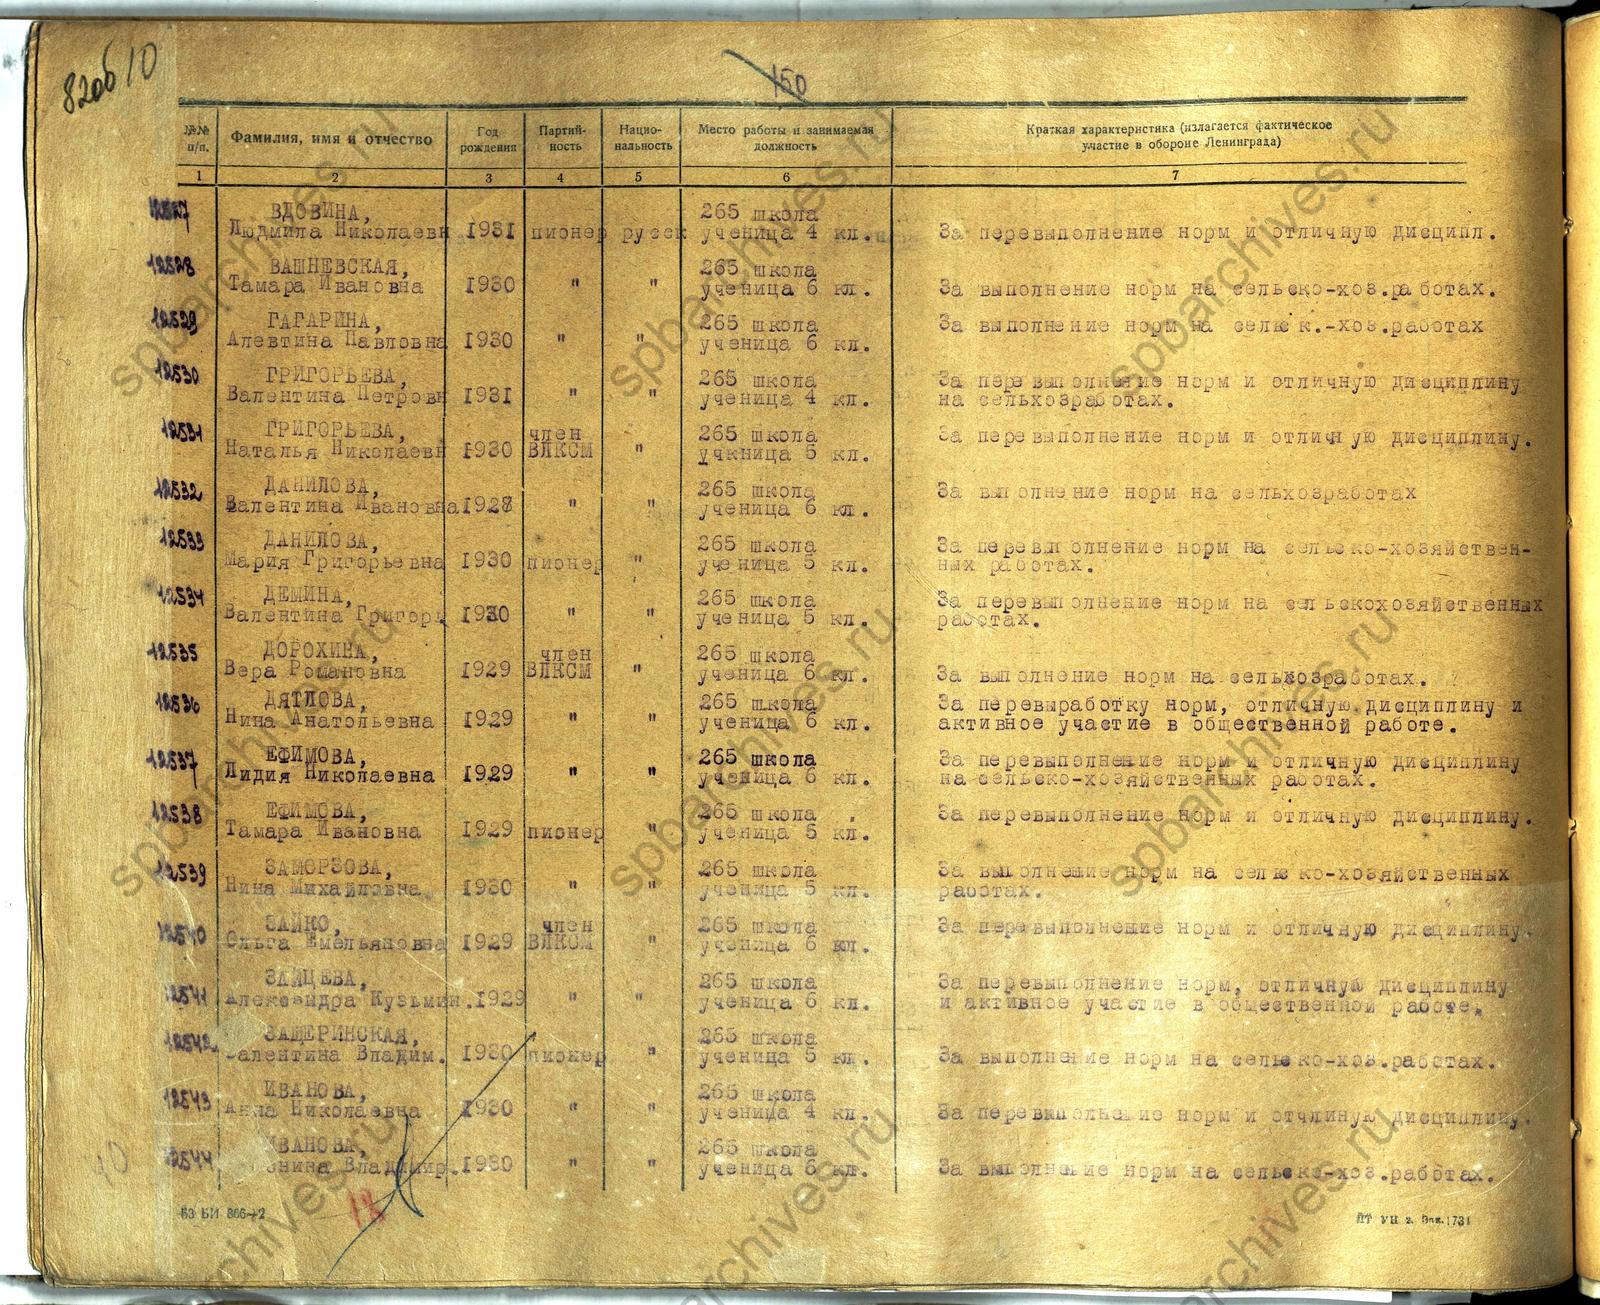 82об 10
150
№№ п/п. Фамилия, имя и отчество Год рождения Партий-ность Нацио-нальность Место работы и занимаемая должность Краткая характеристика (излагается фактическое участие в обороне Ленинграда)
1 2 3 4 5 6 7
12527 ВДОВИНА, 265 школа
Людмила Николаевн 1931 пионер русск ученица 4 кл. За перевыполнение норм и отличную дисципл.
12528 ВАШНЕВСКАЯ, 265 школа
Тамара Ивановна 1930 " " ученица 6 кл. За выполнение норм на сельско-хоз.работах.
12529 ГАГАРИНА, 265 школа За выполнение норм на сельск.-хоз.работах
Алевтина Павловна 1930 " " ученица 6 кл.
12530 ГРИГОРЬЕВА, 265 школа За перевыполнение норм и отличную дисциплину
Валентина Петровн 1931 " " ученица 4 кл. на сельхозработах.
12531 ГРИГОРЬЕВА, член 265 школа За перевыполнение норм и отличную дисциплину.
Наталья Николаевн 1930 ВЛКСМ " учкница 5 кл.
12532 ДАНИЛОВА, 265 школа За выполнение норм на сельхозработах
Валентина Ивановна 1928 " " ученица 6 кл.
12533 ДАНИЛОВА, 265 школа За перевыполнение норм на сельско-хозяйствен-
Мария Григорьевна 1930 пионер " ученица 5 кл. ных работах.
12534 ДЕМИНА, 265 школа За перевыполнение норм на сельскохозяйственных
Валентина Григорь 1930 " " ученица 5 кл. работах.
12535 ДОРОХИНА, член 265 школа
Вера Романовна 1929 ВЛКСМ " ученица 6 кл. За выполнение норм на сельхозработах.
12536 ДЯТЛОВА, 265 школа За перевыработку норм, отличную дисциплину и
Нина Анатольевна 1929 " " ученица 6 кл. активное участие в общественной работе.
12537 ЕФИМОВА, 265 школа За перевыполнение норм и отличную дисциплину
Лидия Николаевна 1929 " " ученица 6 кл. на сельско-хозяйственных работах.
12538 ЕФИМОВА, 265 школа За перевыполнение норм и отличную дисциплину.
Тамара Ивановна 1929 пионер " ученица 5 кл.
12539 ЗАМОРЗОВА, 265 школа За выполнение норм на сельско-хозяйственных
Нина Михайловна 1930 " " ученица 5 кл. работах.
12540 ЗАЙКО, член 265 школа За перевыполнение норм и отличную дисциплину.
Ольга Емельяновна 1929 ВЛКСМ " ученица 6 кл.
12541 ЗАЙЦЕВА, 265 школа За перевыполнение норм, отличную дисциплину
Александра Кузьмин. 1929 " " ученица 6 кл. и активное участие в общественной работе.
12542 ЗАЩЕРИНСКАЯ, 265 школа
Валентина Владим. 1930 пионер " ученица 5 кл. За выполнение норм на сельско-хоз.работах.
12543 ИВАНОВА, 265 школа
Анна Николаевна 1930 " " ученица 4 кл. За перевыполнение норм и отчлиную дисциплину.
12544 ИВАНОВА, 265 школа
Владимир. 1930 " " ученица 6 кл. За выполнение норм на сельско-хоз.работах.
10
18
БЗ БИ 866—2
ЛТ УН г. Зак. 1731
spbarchives.ru